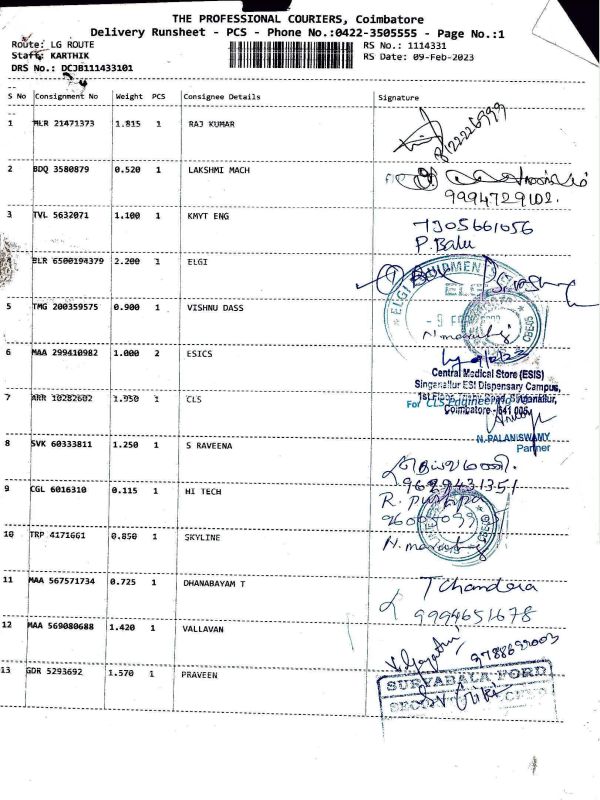 THE PROFESSIONAL COURIERS, Coimbatore
Delivery Runsheet - PCS - Phone No.:0422-3505555 - Page No.:1
Route: LG ROUTE
RS No.: 1114331
Staff: KARTHIK
RS Date: 09-Feb-2023
DRS No.: DCJB111433101
S No Consignment No Weight PCS Consignee Details Signature
1 MLR 21471373 1.815 1 RAJ KUMAR
2 BDQ 3580879 0.520 1 LAKSHMI MACH
9994729102.
3 TVL 5632071 1.100 1 KMYT ENG 7305661056
P. Balu
BLR 6500194379 2.200 1 ELGI
ELGI EQUIPMEN
ELGI
5 TMG 200359575 0.900 1 VISHNU DASS
6 MAA 299410982 1.000 2 ESICS
9/2/23
Central Medical Store (ESIS)
Singanallur ESI Dispensary Campus,
7 ARR 10282602 1.950 1 CLS
1st Floor, Trichy Road, Singanallur,
For CLS Engineering
Coimbatore - 641 005.
N. PALANISWAMY
Partner
8 SVK 60333811 1.250 1 S RAVEENA
9629431351
9 CGL 6016310 0.115 1 HI TECH
R. Pushpa
10 TRP 4171661 0.850 1 SKYLINE
11 MAA 567571734 0.725 1 DHANABAYAM T
T Chandera
9994651678
12 MAA 569080688 1.420 1 VALLAVAN
9788699003
13 GDR 5293692 1.570 1 PRAVEEN
SURYABALA FORD